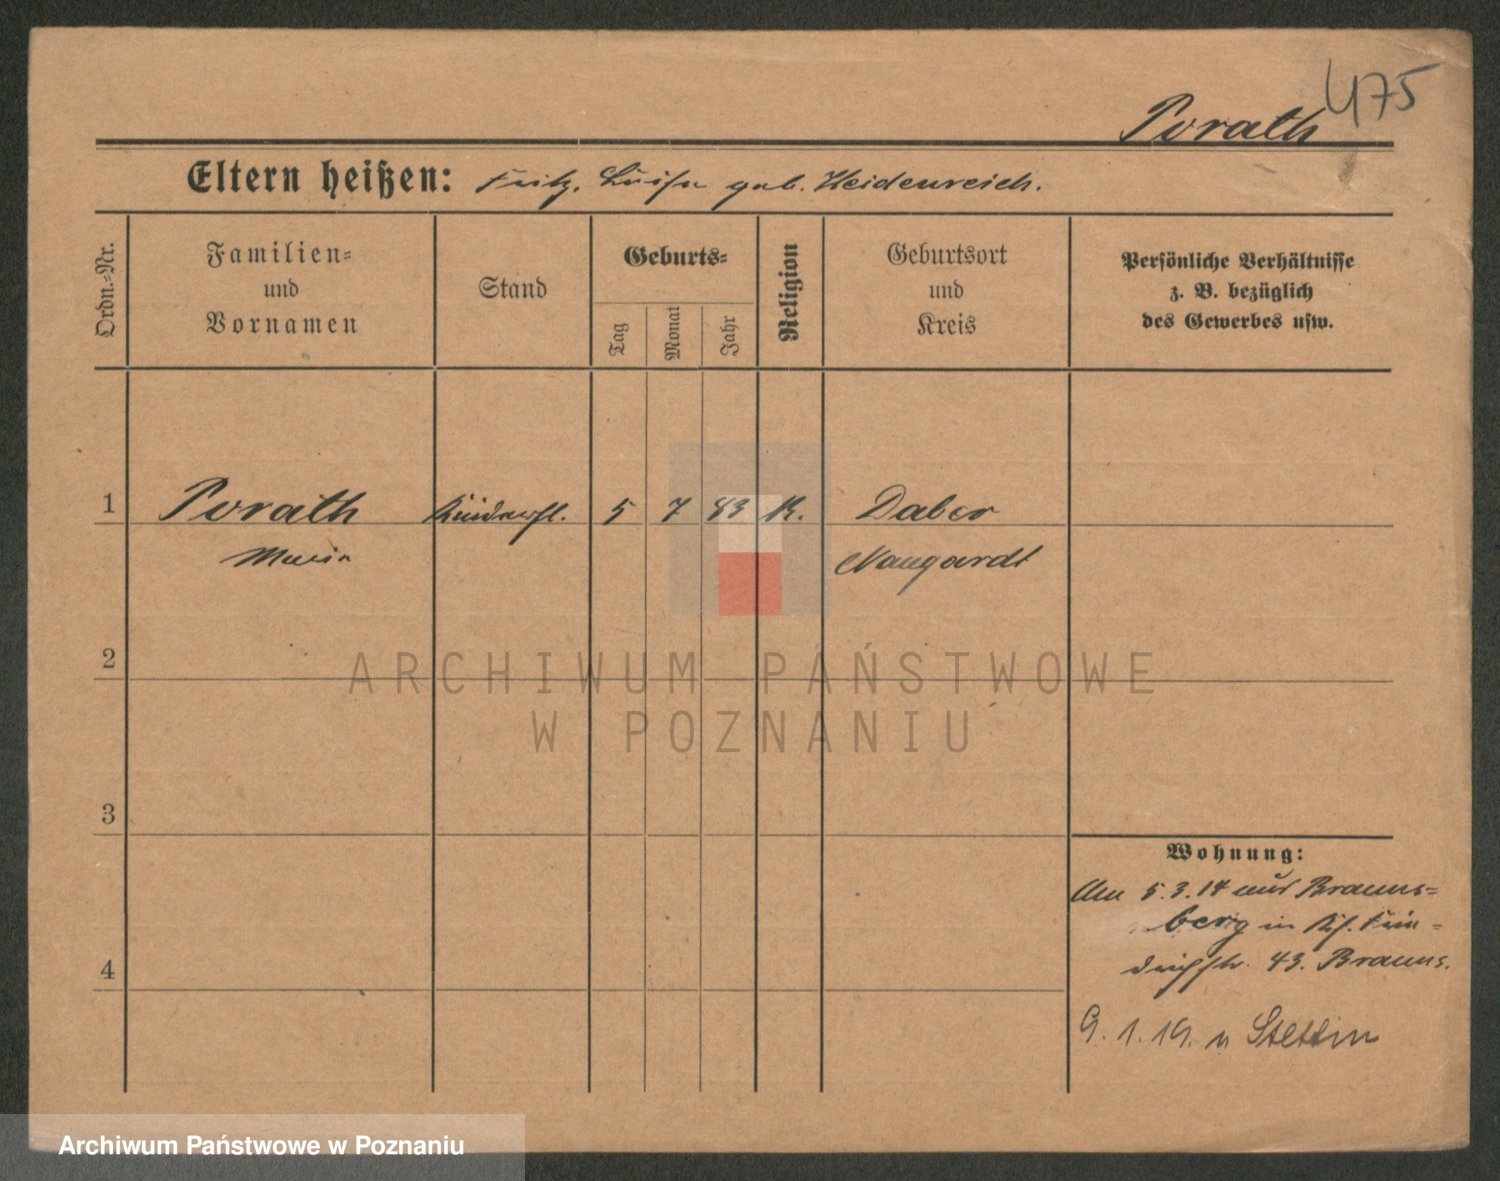 475
Porath
Eltern heißen: Fritz, Luise geb. Heidenreich.
Ordn.-Nr.
Familien-
und
Vornamen
Stand
Geburts-
Tag
Monat
Jahr
Religion
Geburtsort
und
Kreis
Persönliche Verhältnisse
z. B. bezüglich
des Gewerbes usw.
1
Porath
Kinderfl.
5
7
83
K.
Daber
Maria
Naugardt
2
ARCHIWUM PAŃSTWOWE
W POZNANIU
3
Wohnung:
Am 5.3.14 aus Brauns-
berg in
43. Brauns.
4
9. 1. 19. n Stettin
Archiwum Państwowe w Poznaniu